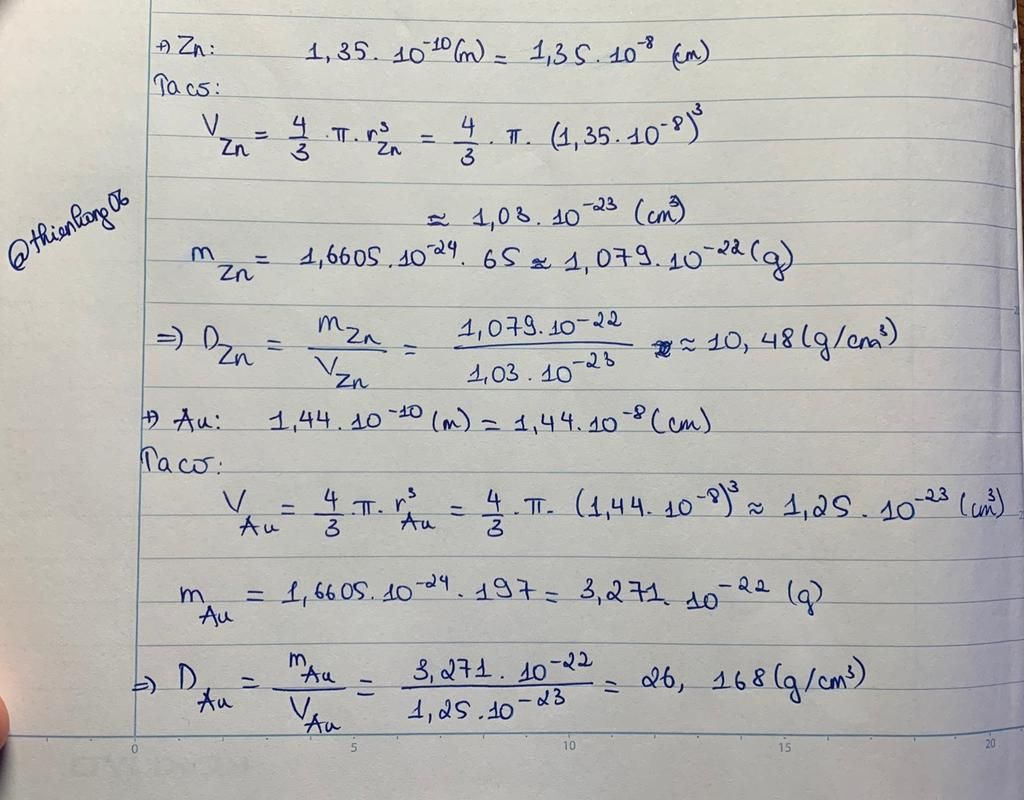 +) Zn: 1,35. 10⁻¹⁰ (m) = 1,35. 10⁻⁸ (cm)
Ta có:
V_Zn = 4/3 . π. r³_Zn = 4/3 . π. (1,35. 10⁻⁸)³
≈ 1,03. 10⁻²³ (cm³)
@thienhang06
m_Zn = 1,6605. 10⁻²⁴. 65 ≈ 1,079. 10⁻²² (g)
=) D_Zn = m_Zn/V_Zn = 1,079. 10⁻²²/1,03. 10⁻²³ ≈ 10,48 (g/cm³)
+) Au: 1,44. 10⁻¹⁰ (m) = 1,44. 10⁻⁸ (cm)
Ta có:
V_Au = 4/3 . π. r³_Au = 4/3 . π. (1,44. 10⁻⁸)³ ≈ 1,25. 10⁻²³ (cm³)
m_Au = 1,6605. 10⁻²⁴. 197 = 3,271. 10⁻²² (g)
=) D_Au = m_Au/V_Au = 3,271. 10⁻²²/1,25. 10⁻²³ = 26, 168 (g/cm³)
0 5 10 15 20